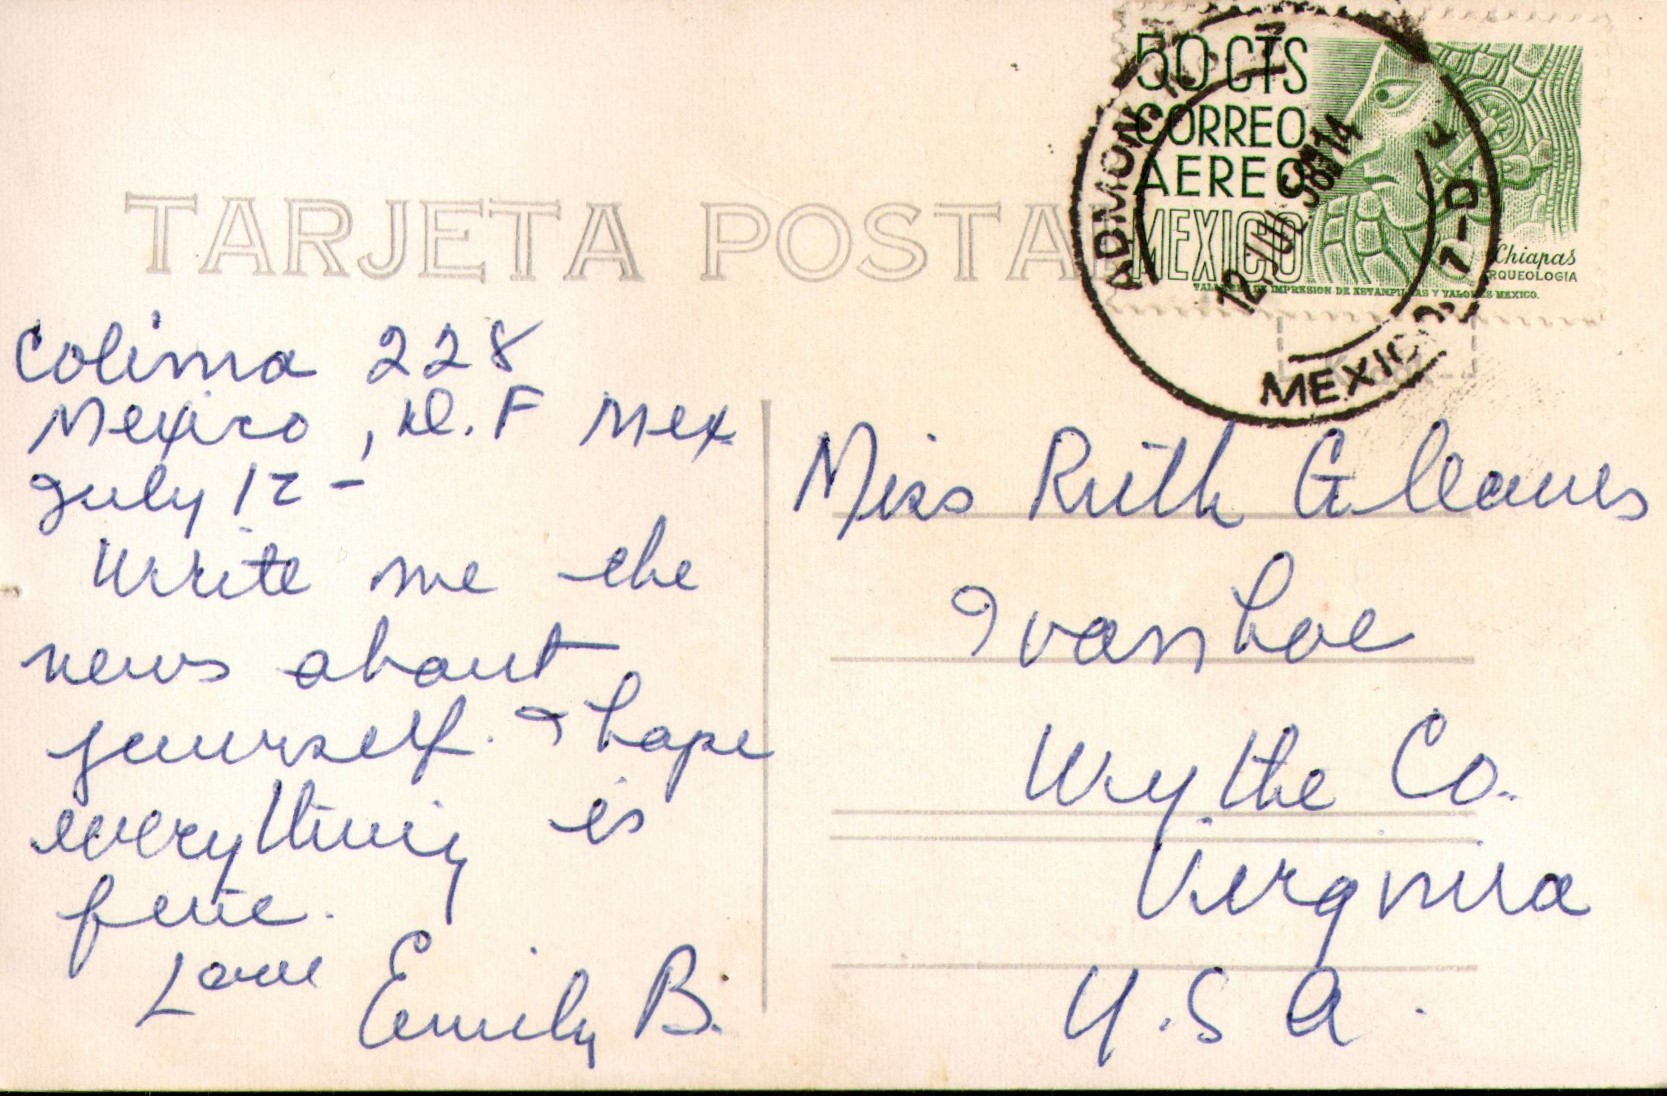 TARJETA POSTA
50 CTS
CORREO
AEREO
MEXICO
Chiapas
ARQUEOLOGIA
TALLERES DE IMPRESION DE ESTAMPILLAS Y VALORES-MEXICO.
ADMON.
12 JUL 58
MEXICO 7-D
Colima 228
Mexico, D.F Mex
July 12-
Write me the
news about
yourself. I hope
everything is
fine.
Love Emily B.
Miss Ruth Gleaves
Ivanhoe
Wythe Co.
Virginia
U.S.A.